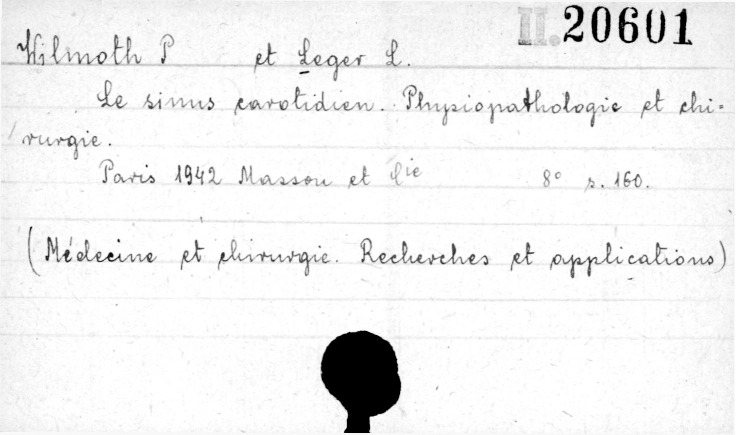 II. 20601
Wilmoth P et Leger L.
Le sinus carotidien. Physiopathologie et chi-
rurgie.
Paris 1942 Masson et Cie 8° s. 160.
(Médecine et chirurgie. Recherches et applications)